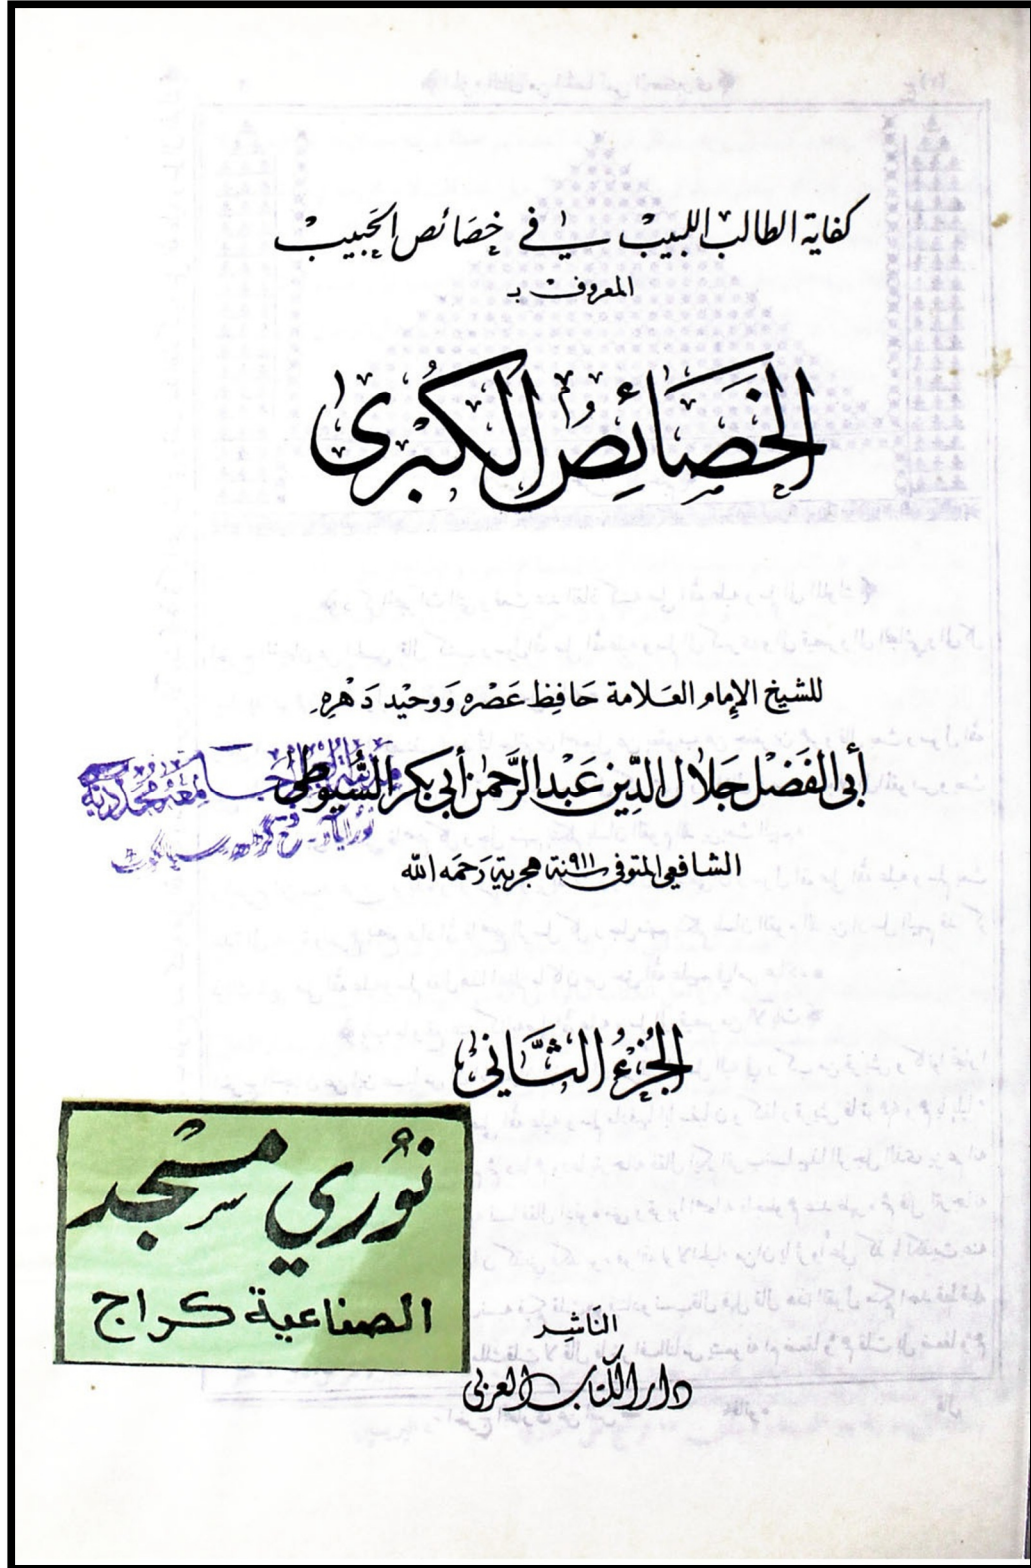 كفاية الطالب اللبيب في خصائص الحبيب
المعروف بـ
الخَصَائِصُ الكُبْرى
للشيخ الإمام العَلامة حَافِظ عَصْرِه وَوحْيد دَهْرِه
أبى الفَضْل جَلال الدِّين عَبْد الرَّحمٰن أبى بكر السُّيُوطى
الشافعى المتوفى سنة ٩١١ هجرية رَحمَه الله
الجُزءُ الثَّانى
نُوري مسْجد
الصناعية كراج
النَاشِر
دار الكتاب العربى